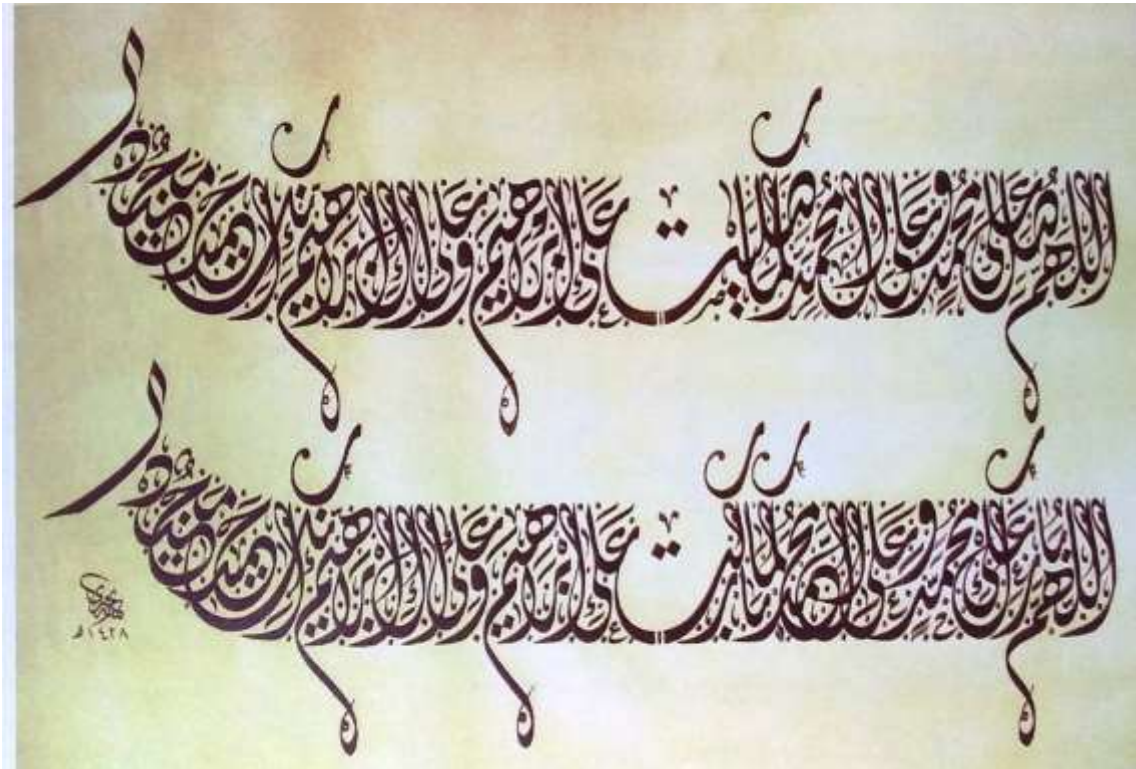 اللهم صل على محمد وعلى آل محمد كما صليت على إبراهيم وعلى آل إبراهيم إنك حميد مجيد
اللهم بارك على محمد وعلى آل محمد كما باركت على إبراهيم وعلى آل إبراهيم إنك حميد مجيد
١٤٢٨هـ